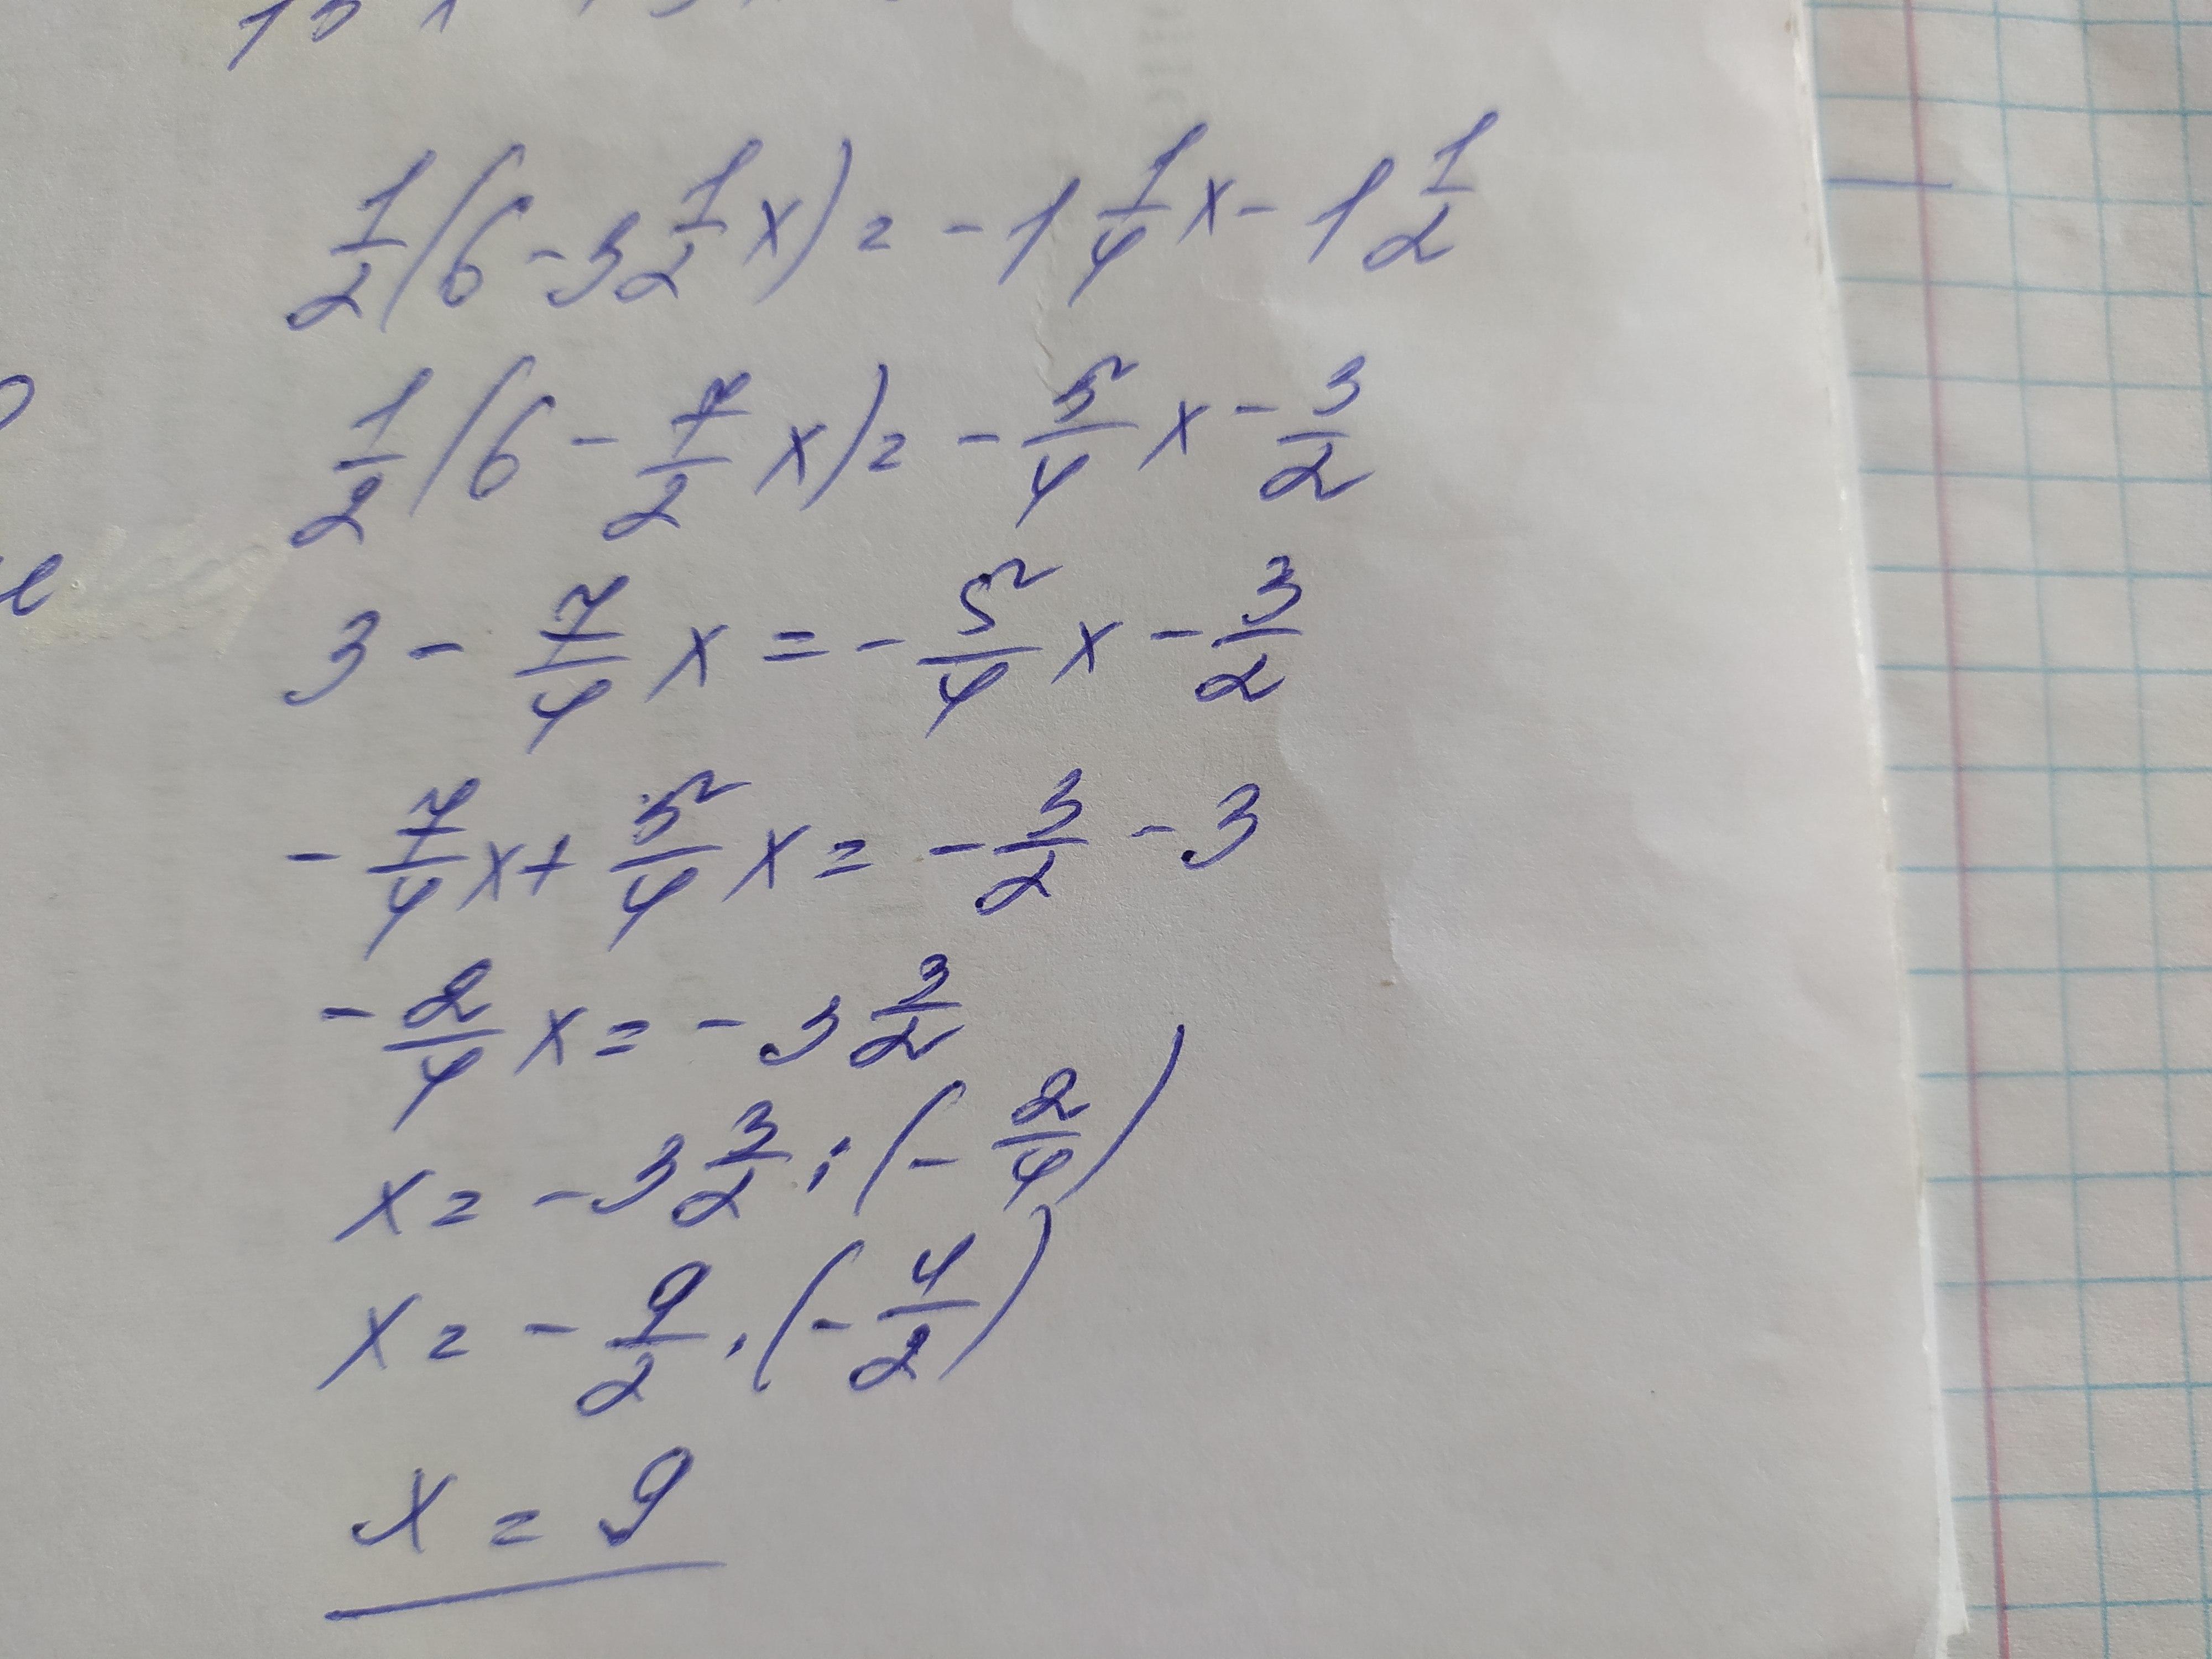 1/2(6 - 3 1/2 x) = -1 1/4 x - 1 1/2
1/2(6 - 7/2 x) = - 5/4 x - 3/2
3 - 7/4 x = - 5/4 x - 3/2
- 7/4 x + 5/4 x = - 3/2 - 3
- 2/4 x = - 3 3/2
x = - 3 3/2 : (- 2/4)
x = - 9/2 · (- 4/2)
x = 9